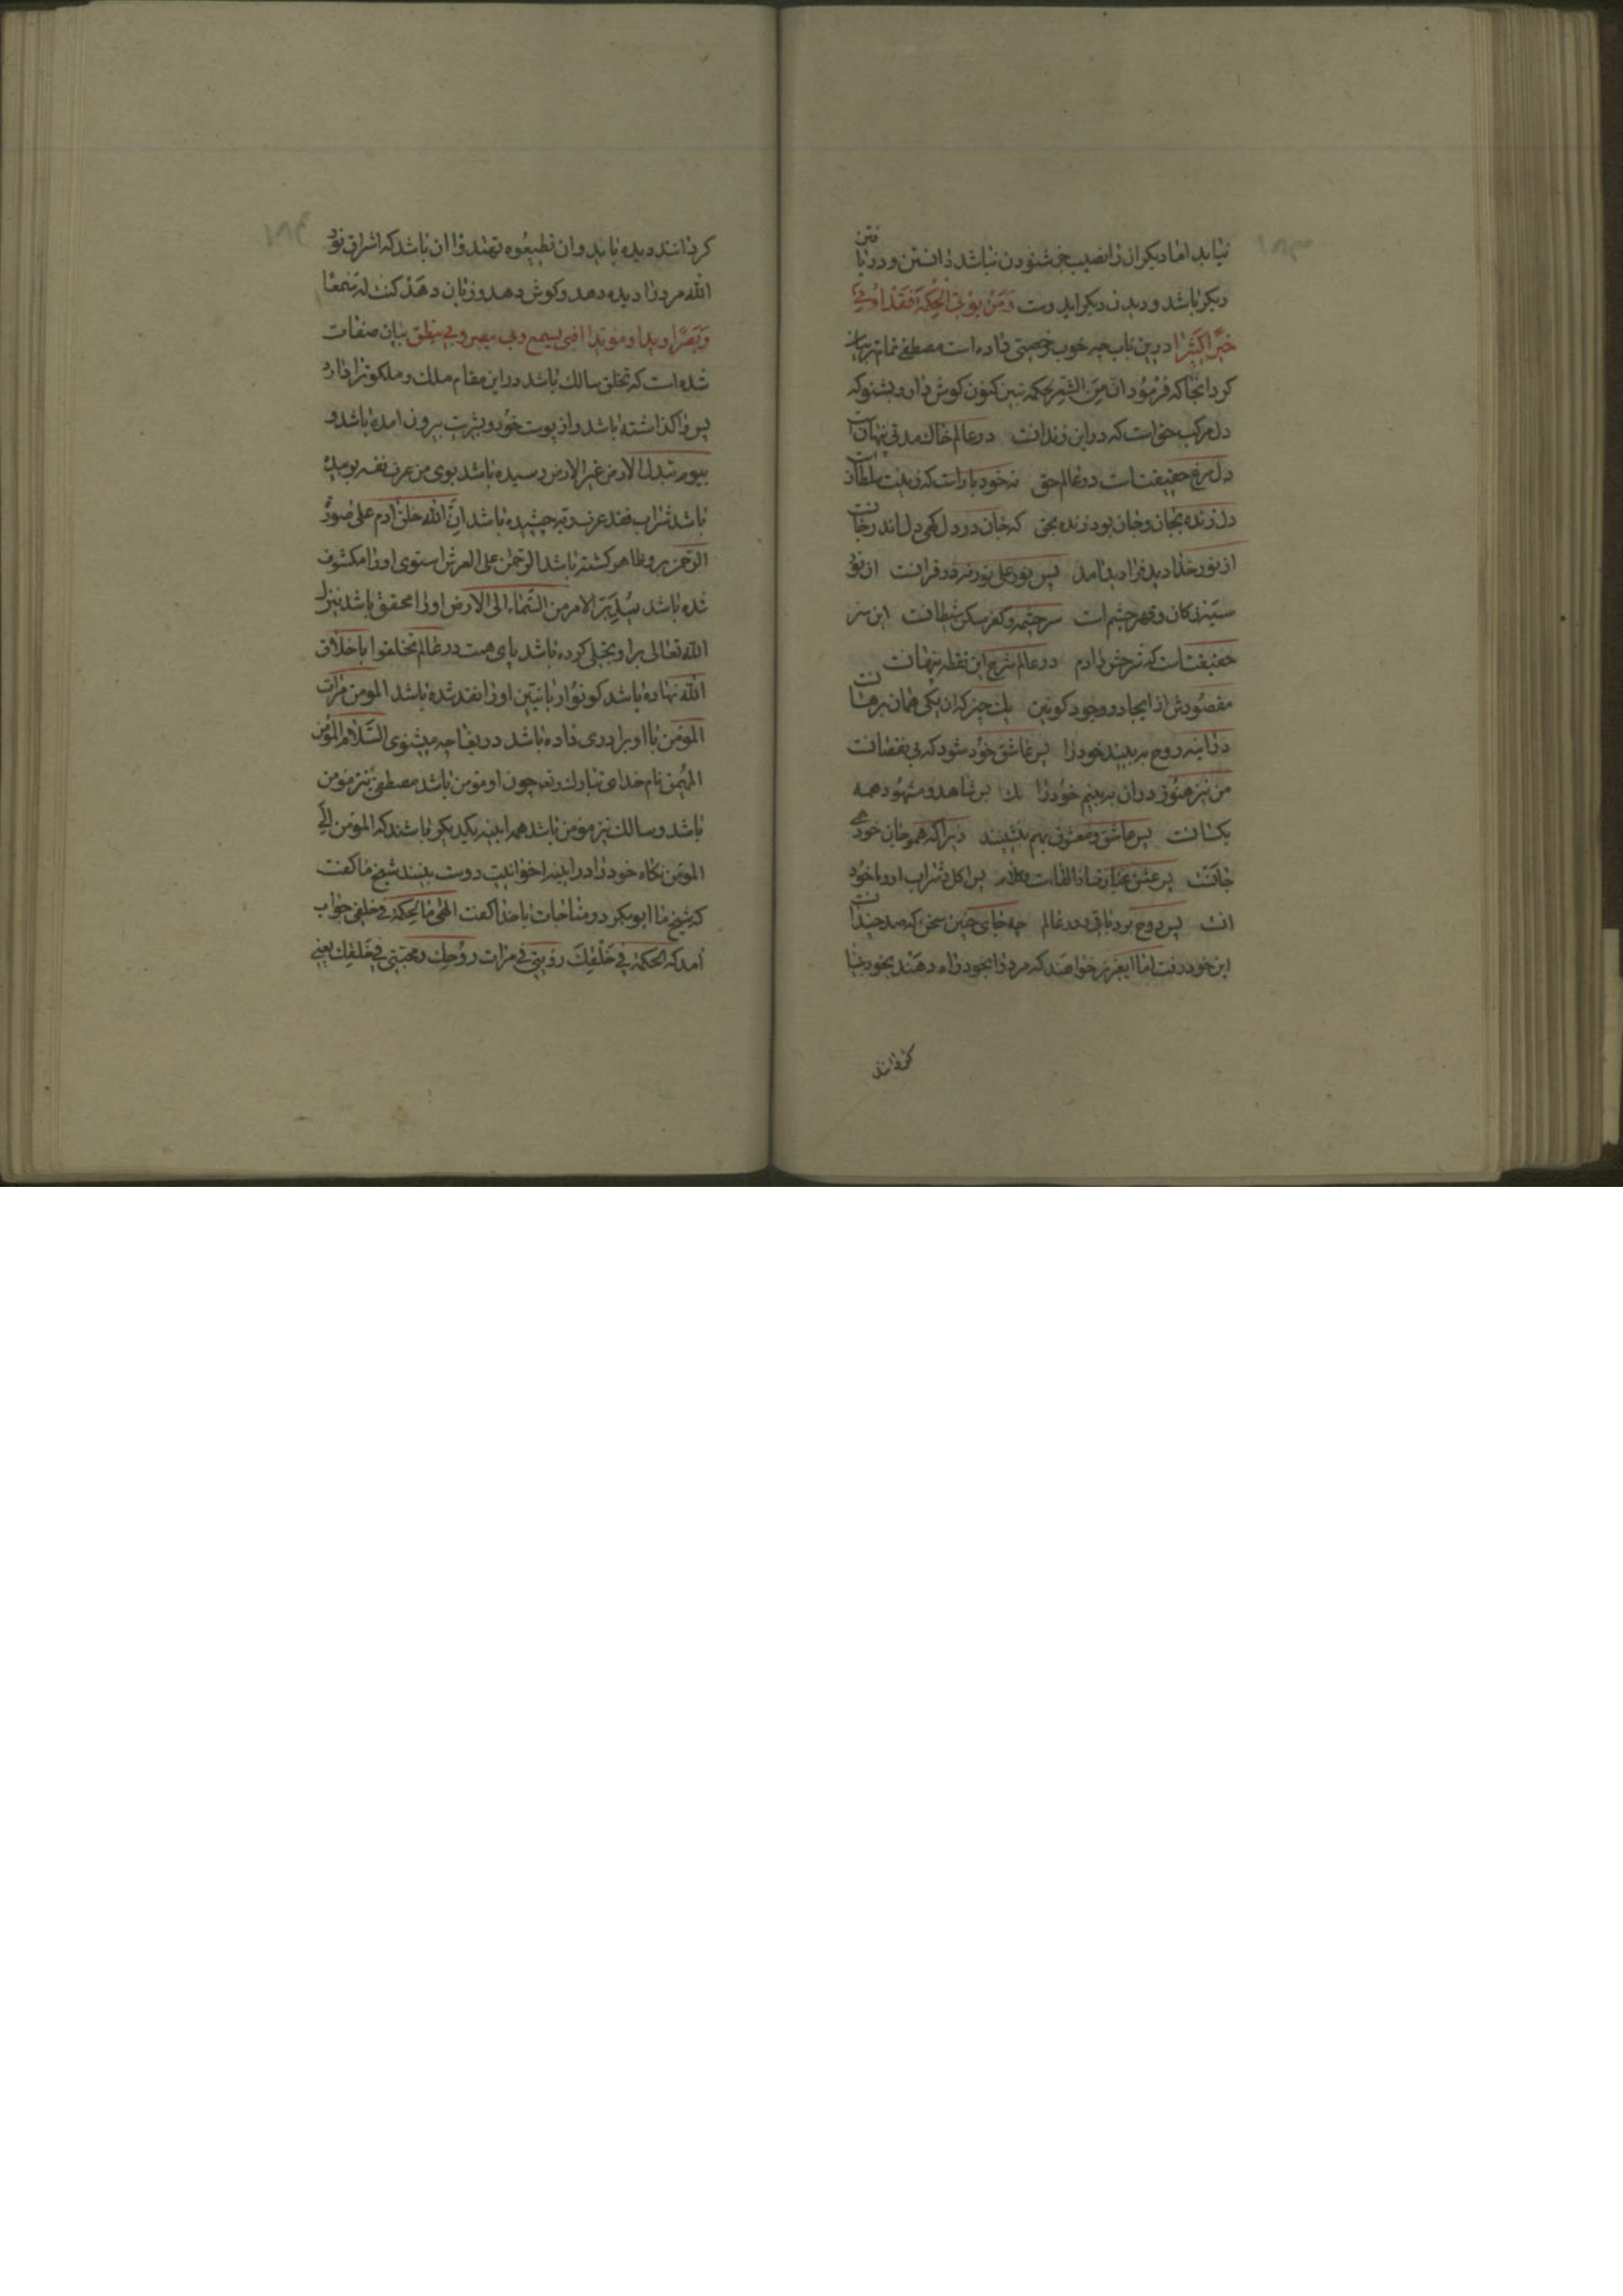 نیاید اما دیکران را نصیب جز شنودن نباشد دانستن و دریا
فتن
دیکر باشد و دیدن دیکر ایدوست وَمَنْ یُؤتِیَ الْحِکمَةَ فَقَدْ اُوتِیَ
خَیرًا کَثیرًا درین باب چه خوب رخصتی داده است مصطفی تمامتر بیان
کرد انجا که فرمود ان من الشعر لحکمه نیز کنون کوش دار و بشنو که
دل مرکب حق است که در این زندانست در عالم خاک مدتی پنهانست
دل مرغ حقیقت است در عالم حق نه خود باز است که زینت سلطانست
دل زنده بجان و جان بود زنده بحق که جان در دل کهی دل اندر جانست
از نور خدا دید فرا دید آمد پس نور علی نور نه در قرانست از نور
سیه کان و مهر چشم است سرچشمه کفر مسکن شیطانست این سر
حقیقتست که شرحش دادم در عالم شرح این نقطه پنهانست
مقصودش از ایجاد و وجود کونین یک چیز که از یکی همان برهانست
در اینه روح به بیند خود را پس عاشق خود شود که بی نقصانست
من نیز هنوز در ان به بینم خود را پس شاهد و مشهود همه
یکسانست پس عاشق و معشوق بهم بنشینند زیرا که همو جان خودی
جانست پس عشق عبارتست از الفات پس اکل و شراب او با خود
انست پس روح بود باقی و در عالم چه جای چنین سخن که صد چندانست
این خود رفت اما ایعزیز خواهند که مرد را بخود راه دهند بخود بینا
کردانند
کردانند دیده باید وان تطیعوه تهتدوا ان باشد که اشراق نور
الله مرد را دیده دهد و کوش دهد و زبان دهد کنت له سَمعًا
وَبَصَرًا ویدا و مؤیدا فبی یسمع وبی یبصر وبی ینطق بیان صفات
شده است که تخلق سالک باشد در این مقام ملک و ملکوت را
پس واکذاشته باشد و از پوست خود و بشریت بیرون امده باشد و
بیوم تبدل الارض غیر الارض رسیده باشد بوی من عرف نفسه بوییده
باشد شراب فقد عرف ربه چشیده باشد انَّ الله خلق آدم علی صورة
الرحمن برو ظاهر کشته باشد الرحمن علی العرش استوی او را مکشوف
شده باشد یُدَبِّرُ الامر من السَّماء الی الارض او را محقق باشد ینزل
الله تعالی بر او تجلی کرده باشد پای همت در عالم تخلقوا باخلاق
الله نهاده باشد کونوا ربانیین او را نقد شده باشد المومن مرات
المومن با او برادری داده باشد دریغا چه میشنوی السَّلام المؤمن
المهیمن نام خدای تبارک و تعـ چون او مومن باشد مصطفی نیز مومن
باشد و سالک نیز مومن باشد همه اینه یکدیکر باشند که المومن
المومن نکاه خود را در اینه اخوانیت دوست بینند شیخ ما کفت
که شیخ ما ابوبکر در مناجات با خدا کفت الهی ما الحکمة فی خلقی جواب
آمد که الحکمة فی خَلْقِکَ رؤیتی فی مرات روُحِک و محبتی فی خَلقِکَ یعنی